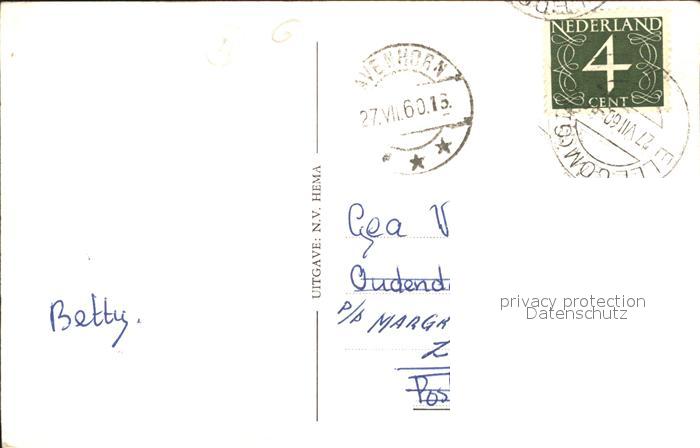 NEDERLAND
4
CENT
AVENHORN
27.VII.60.16.
27 VII 60
UITGAVE: N.V. HEMA
Gea V
Oudend
p/a MARGR
Z
Pos
Betty.
privacy protection
Datenschutz